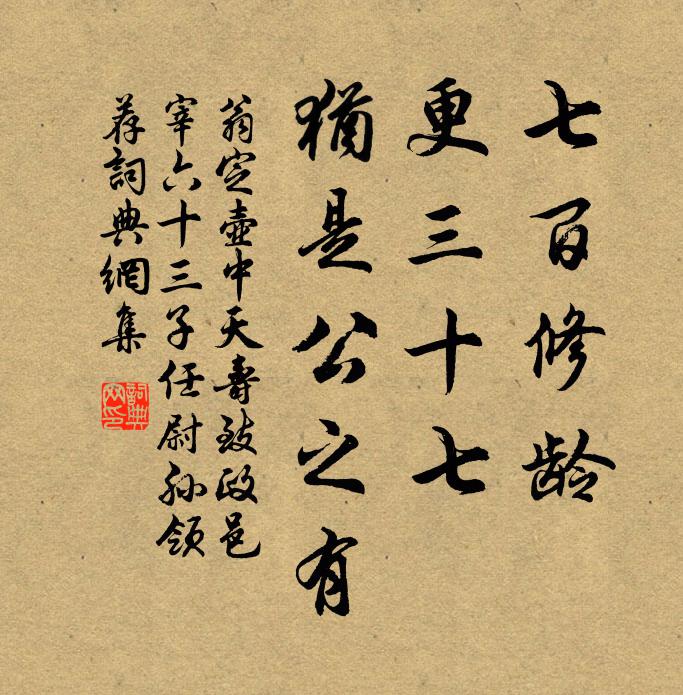 七百修龄
更三十七
猶是公之有
翁定壺中天壽致政邑
宰六十三子任尉孙領
荐詞典網集
詞典网印